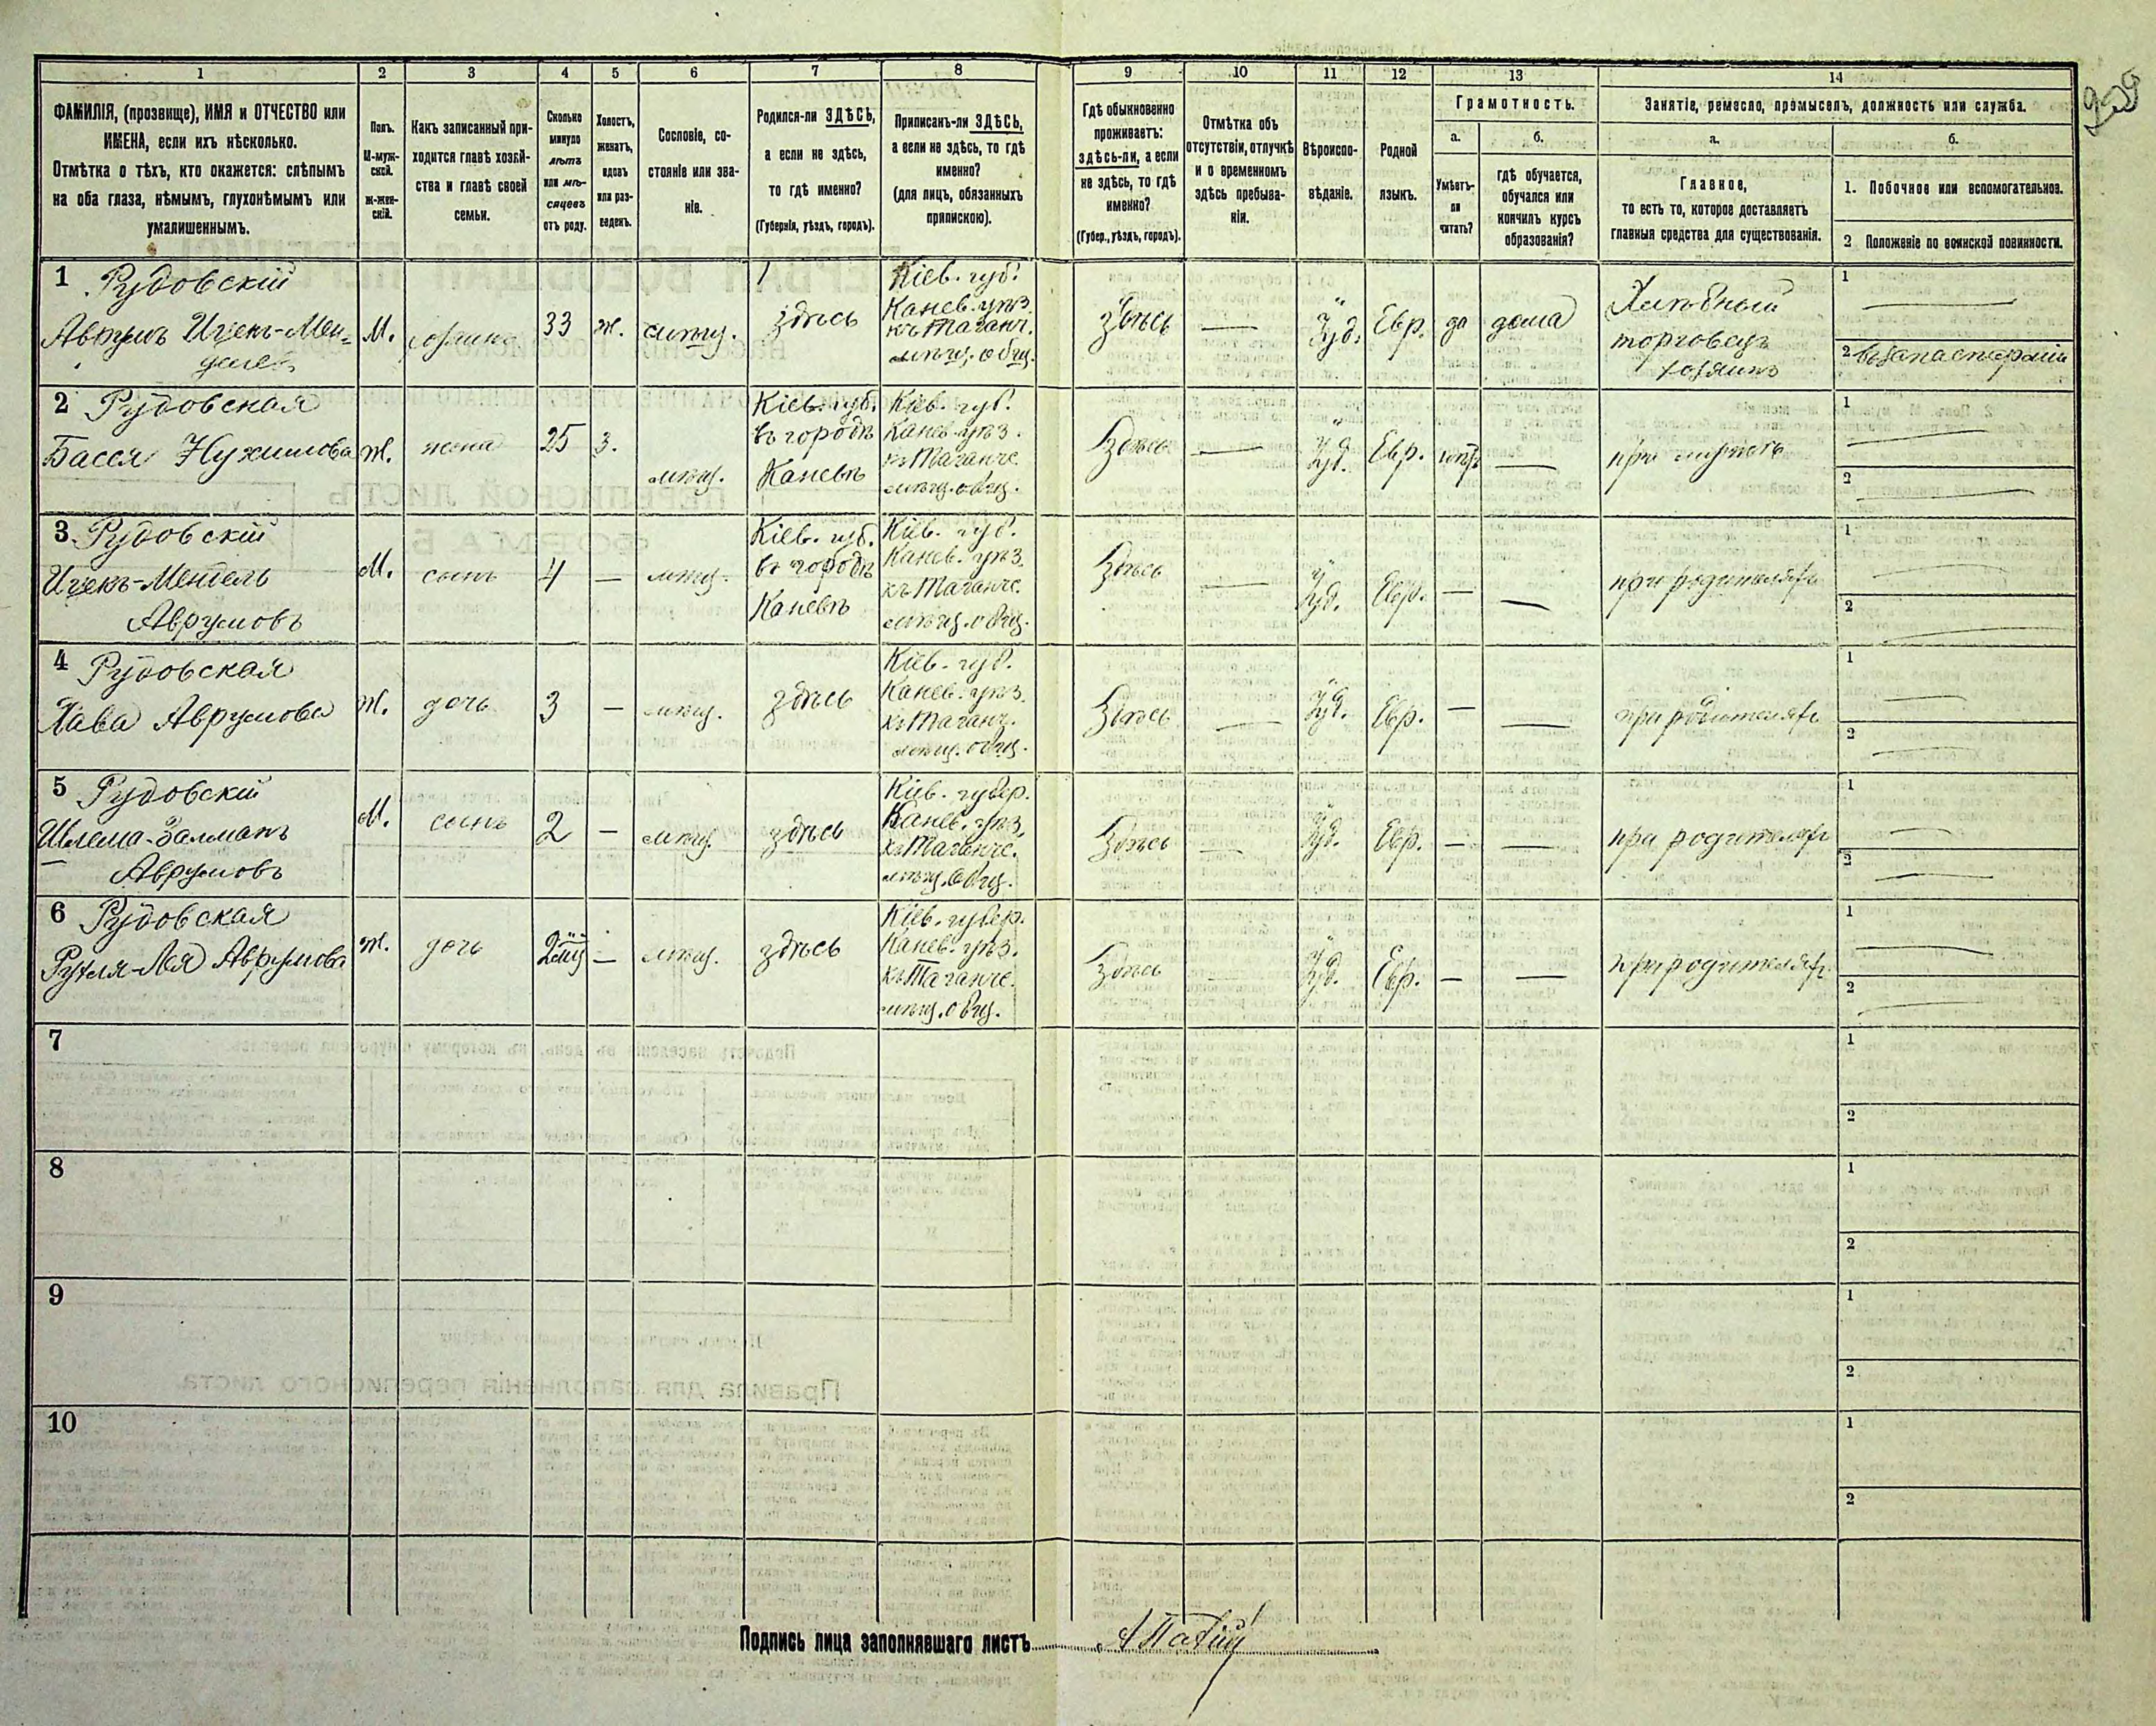 209
1
2
3
4
5
6
7
8
9
10
11
12
13
14
ФАМИЛІЯ, (прозвище), ИМЯ и ОТЧЕСТВО или
ИМЕНА, если ихъ нѣсколько.
Отмѣтка о тѣхъ, кто окажется: слѣпымъ
на оба глаза, нѣмымъ, глухонѣмымъ или
умалишеннымъ.
Полъ.
М-муж-
ской.
ж-жен-
скій.
Какъ записанный при-
ходится главѣ хозяй-
ства и главѣ своей
семьи.
Сколько
минуло
лѣтъ
или мѣ-
сяцевъ
отъ роду.
Холостъ,
женатъ,
вдовъ
или раз-
веденъ.
Сословіе, со-
стояніе или зва-
ніе.
Родился-ли ЗДѢСЬ,
а если не здѣсь,
то гдѣ именно?
(Губернія, уѣздъ, городъ).
Приписанъ-ли ЗДѢСЬ,
а если не здѣсь, то гдѣ
именно?
(для лицъ, обязанныхъ
припискою).
Гдѣ обыкновенно
проживаетъ:
здѣсь-ли, а если
не здѣсь, то гдѣ
именно?
(Губер., уѣздъ, городъ).
Отмѣтка объ
отсутствіи, отлучкѣ
и о временномъ
здѣсь пребыва-
ніи.
Вѣроиспо-
вѣданіе.
Родной
языкъ.
Грамотность.
а.
Умѣетъ-
ли
читать?
б.
гдѣ обучается,
обучался или
кончилъ курсъ
образованія?
Занятіе, ремесло, промыселъ, должность или служба.
а.
Главное,
то есть то, которое доставляетъ
главныя средства для существованія.
б.
1. Побочное или вспомогательное.
2 Положеніе по воинской повинности.
1 Рудовскій
Аврумъ Ицекъ-Мен-
делев
М.
хозяинъ
33
ж.
мѣщ.
здѣсь
Кіев. губ.
Канев. уѣз.
къ Таганч.
мѣщ. общ.
здѣсь
—
Іуд.
Евр.
да
дома
Хлѣбный
торговецъ
хозяинъ
1 —
2 въ запасе арміи
2 Рудовская
Бася Нухимова
ж.
жена
25
з.
мѣщ.
Кіев. губ.
въ городѣ
Каневѣ
Кіев. губ.
Канев. уѣз.
къ Таганче.
мѣщ. общ.
здѣсь
—
Іуд.
Евр.
нѣтъ
—
при мужѣ
1 —
2 —
3 Рудовскій
Ицекъ-Мендель
Аврумовъ
М.
сынъ
4
—
мѣщ.
Кіев. губ.
въ городѣ
Каневѣ
Кіев. губ.
Канев. уѣз.
къ Таганче.
мѣщ. общ.
здѣсь
—
Іуд.
Евр.
—
—
при родителяхъ
1 —
2 —
4 Рудовская
Хава Аврумова
ж.
дочь
3
—
мѣщ.
здѣсь
Кіев. губ.
Канев. уѣз.
къ Таганч.
мѣщ. общ.
здѣсь
—
Іуд.
Евр.
—
—
при родителяхъ
1 —
2 —
5 Рудовскій
Шлема-Залманъ
Аврумовъ
М.
сынъ
2
—
мѣщ.
здѣсь
Кіев. губер.
Канев. уѣз.
къ Таганче.
мѣщ. общ.
здѣсь
—
Іуд.
Евр.
—
—
при родителяхъ
1 —
2 —
6 Рудовская
Рухля-Лея Аврумова
ж.
дочь
—
мѣщ.
здѣсь
Кіев. губер.
Канев. уѣз.
къ Таганче.
мѣщ. общ.
здѣсь
—
Іуд.
Евр.
—
—
при родителяхъ
1 —
2 —
7
1
2
8
1
2
9
1
2
10
1
2
Подпись лица заполнявшаго листъ